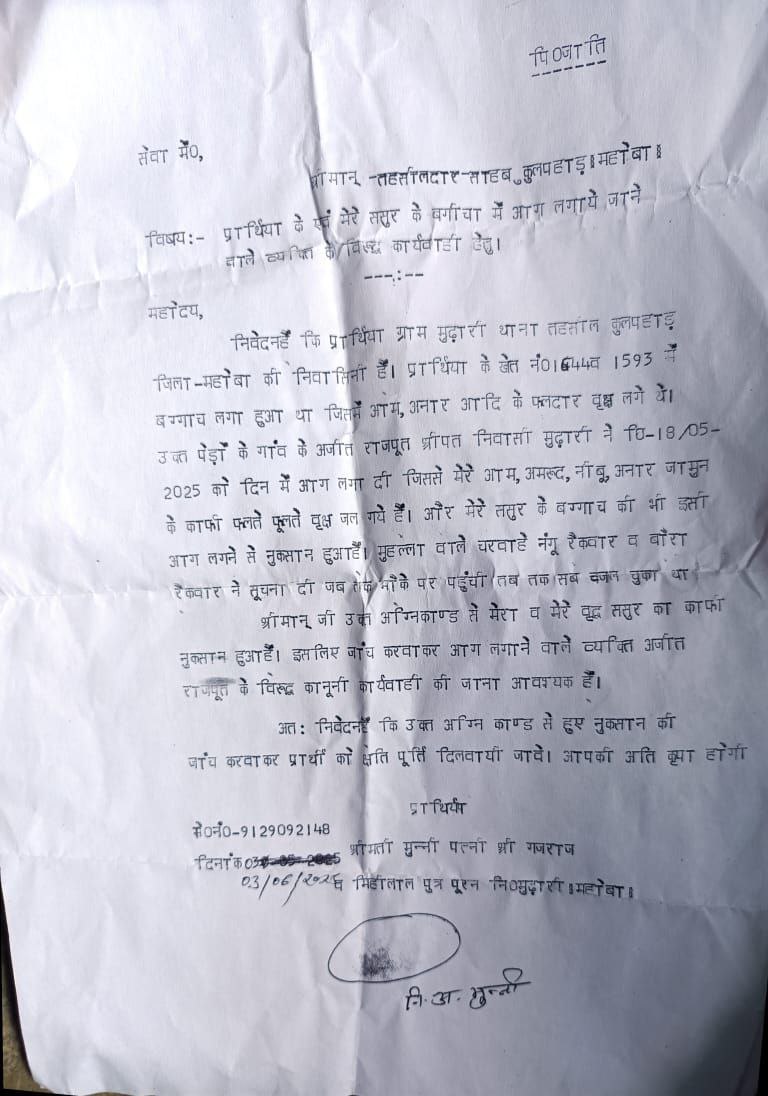 पि0जाति
सेवा में0,
श्रीमान् -तहसीलदार-साहब, कुलपहाड़ (महोबा)
विषय:- प्रार्थिया के एवं मेरे ससुर के बगीचा में आग लगाये जाने
वाले व्यक्ति के विरूद्ध कार्यवाही हेतु।
---:--
महोदय,
निवेदनहै कि प्रार्थिया ग्राम मुढ़ारी थाना तहसील कुलपहाड़
जिला-महोबा की निवासिनी है। प्रार्थिया के खेत नं01644व 1593 में
बग्गीच लगा हुआ था जिसमें आम, अनार आदि के फलदार वृक्ष लगे थे।
उक्त पेड़ों के गांव के अजीत राजपूत श्रीपत निवासी मुढ़ारी ने दि-18/05-
2025 को दिन में आग लगा दी जिससे मेरे आम, अमरूद, नीबू, अनार जामुन
के काफी फलते फूलते वृक्ष जल गये है। और मेरे ससुर के बग्गीच की भी इसी
आग लगने से नुकसान हुआहै। मुहल्ला वाले चरवाहे नंगू रैकवार व बौरा
रैकवार ने सूचना दी जब तक मौके पर पहुंची तब तक सब जल चुका था
श्रीमान् जी उक्त अग्निकाण्ड से मेरा व मेरे वृद्ध ससुर का काफी
नुकसान हुआहै। इसलिए जांच करवाकर आग लगाने वाले व्यक्ति अजीत
राजपूत के विरूद्ध कानूनी कार्यवाही की जाना आवश्यक है।
अत: निवेदनहै कि उक्त अग्नि काण्ड से हुए नुकसान की
जांच करवाकर प्रार्थी को क्षति पूर्ति दिलवायी जावे। आपकी अति कृपा होगी
प्रार्थिया
मो0नं0-9129092148
दिनांक श्रीमती मुन्नी पत्नी श्री गजराज
03/06/2025 व मिहीलाल पुत्र पूरन नि0मुढ़ारी (महोबा)
नि. अ. मुन्नी